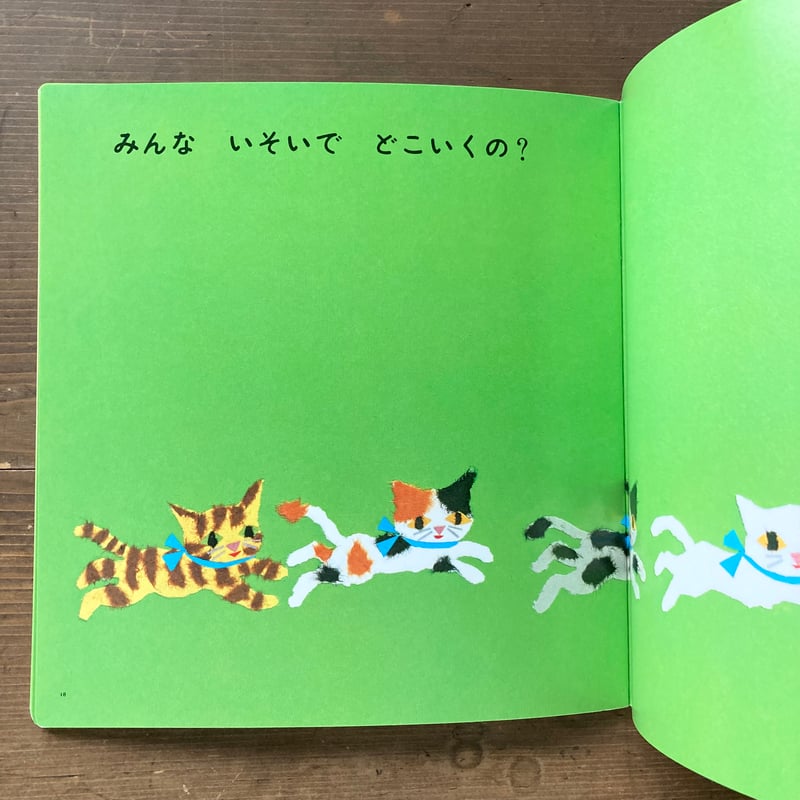 みんな　いそいで　どこいくの？
18